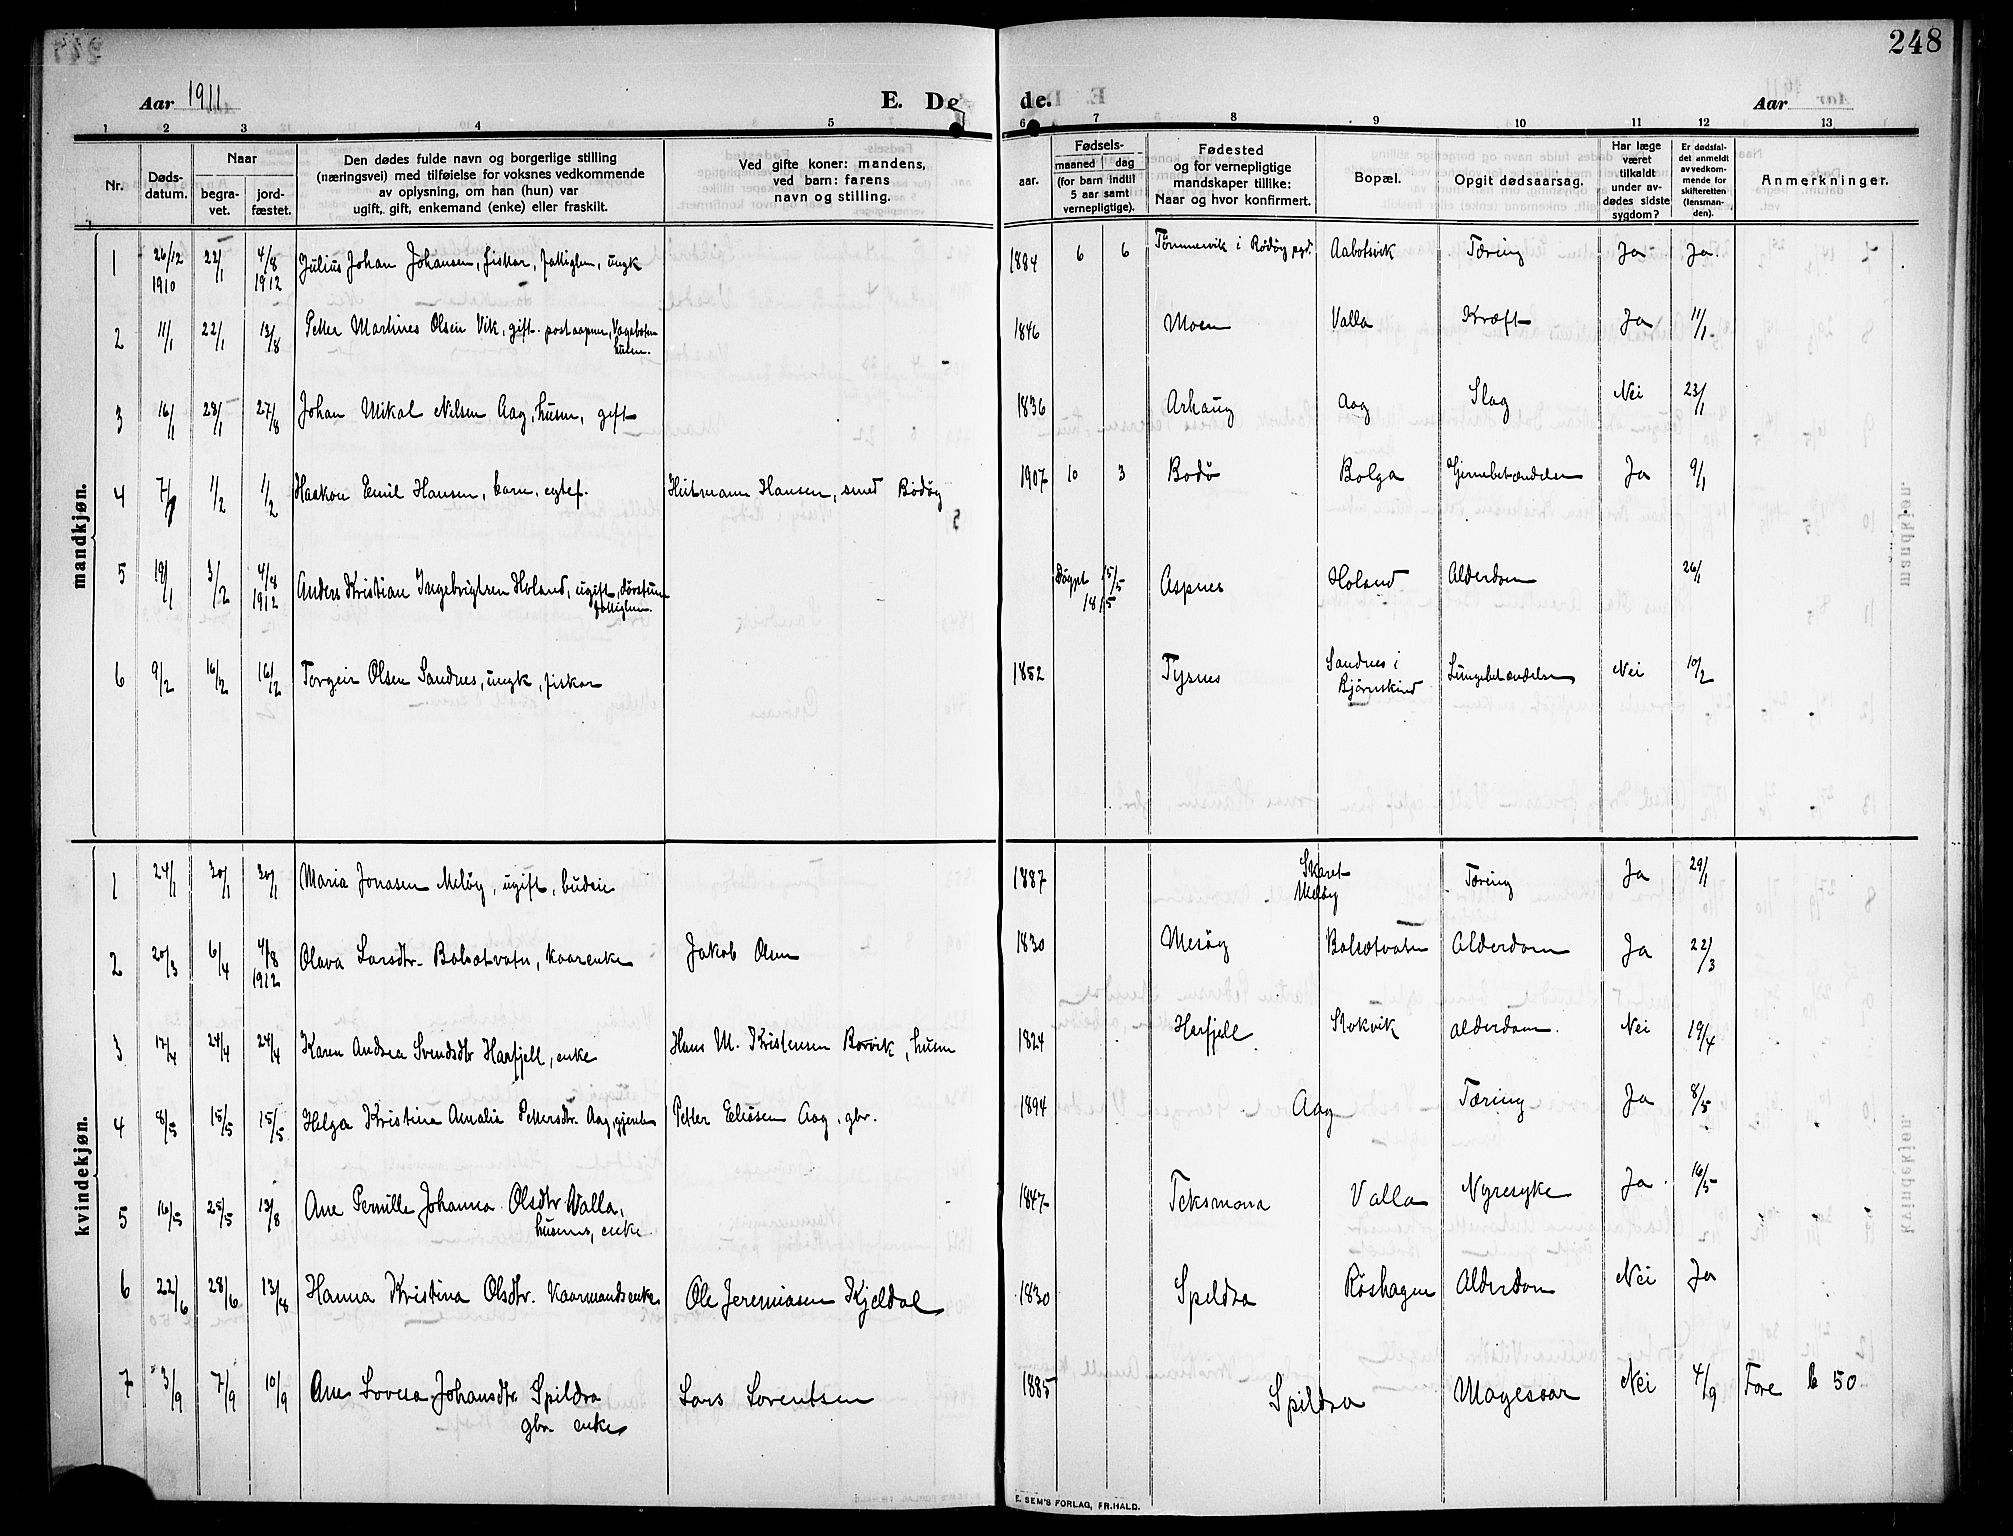 248
Aar 1911
E. Dø
de.
Aar
1 2 3 4 5 6 7 8 9 10 11 12 13
Nr.
Døds-
datum.
Naar
begra-
vet.
jord-
fæstet.
Den dødes fulde navn og borgerlige stilling
(næringsvei) med tilføielse for voksnes vedkommende
av oplysning, om han (hun) var
ugift, gift, enkemand (enke) eller fraskilt.
Ved gifte koner: mandens,
ved barn: farens
navn og stilling.
Fødsels-
aar.
maaned
dag
(for barn indtil
5 aar samt
vernepligtige).
Fødested
og for vernepligtige
mandskaper tillike:
Naar og hvor konfirmert.
Bopæl.
Opgit dødsaarsag.
Har læge
været
tilkaldt
under av-
dødes sidste
sygdom?
Er dødsfal-
det anmeldt
av vedkom-
mende for
skifteretten
(lensman-
den).
Anmerkninger.
mandkjøn.
1 26/12 1910 22/1 4/8 1912 Julius Johan Johansen, fisker, fattiglem, ungk 1884 6 6 Tømmervik i Rødøy pgd. Aabotsvik Tæring Ja Ja.
2 11/1 22/1 13/8 Petter Martines Olsen Vik, gift. postaapner, 1846 Moen Valla Kræft Ja 11/1
3 16/1 28/1 27/8 Johan Mikal Nilsen Aag, husm, gift 1836 Arhaug Aag Slag Nei 23/1
4 1/2 1/2 Haakon Emil Hansen, barn, egtef. Hansen, smed Bodøy 1907 10 3 Bodø Bolga Ja 9/1
5 19/1 3/2 4/8 1912 Anders Kristian Ingebrigtsen Holand, ugift, døvstum
fattiglem. Døpt 15/5 Aspnes Holand Alderdom 26/1
6 9/2 16/2 16/12 Torgeir Olsen Sandnes, ungk, fisker 1852 Tysnes Sandnes i
Bjærrskind Lungebetændelse Nei 10/2
kvindekjøn.
1 24/1 30/1 30/1 Maria Jonasen Meløy, ugift, budeie 1887 Skaret
Meløy Tæring Ja 29/1
2 20/3 6/4 4/8 1912 Olava Larsdtr. Bolsøtvatn, kaarenke Jakob Olsen 1830 Mesøy Bolsøtvatn Alderdom Ja 22/3
3 17/4 24/4 24/4 Karen Andrea Svendsdtr Harfjell, enke Hans M. Kristensen Borvik, husm 1824 Harfjell Stokvik alderdom. Nei 19/4
4 8/5 15/5 15/5 Helga Kristina Amalie Pettersdtr. Aag, gjente Petter Eliasen Aag, gbr. 1894 Aag Tæring Ja 8/5
5 16/5 25/5 13/8 Ane Pernille Johanna Olsdtr Valla,
husmns, enke 1847 Teksmona Valla Nyresyke Ja 16/5
6 22/6 28/6 13/8 Hanna Kristina Olsdtr. Kaarmandsenke Ole Jeremiasen Kjeldal 1830 Spildra Røshagen Alderdom Nei Ja
7 3/9 7/9 10/9 Ane Lovisa Johansdtr Spildra
gbr enke Lars Lorentsen 1885 Spildra Magesaar Nei 4/9 Fore 50
E. SEM'S FORLAG, FR.HALD.